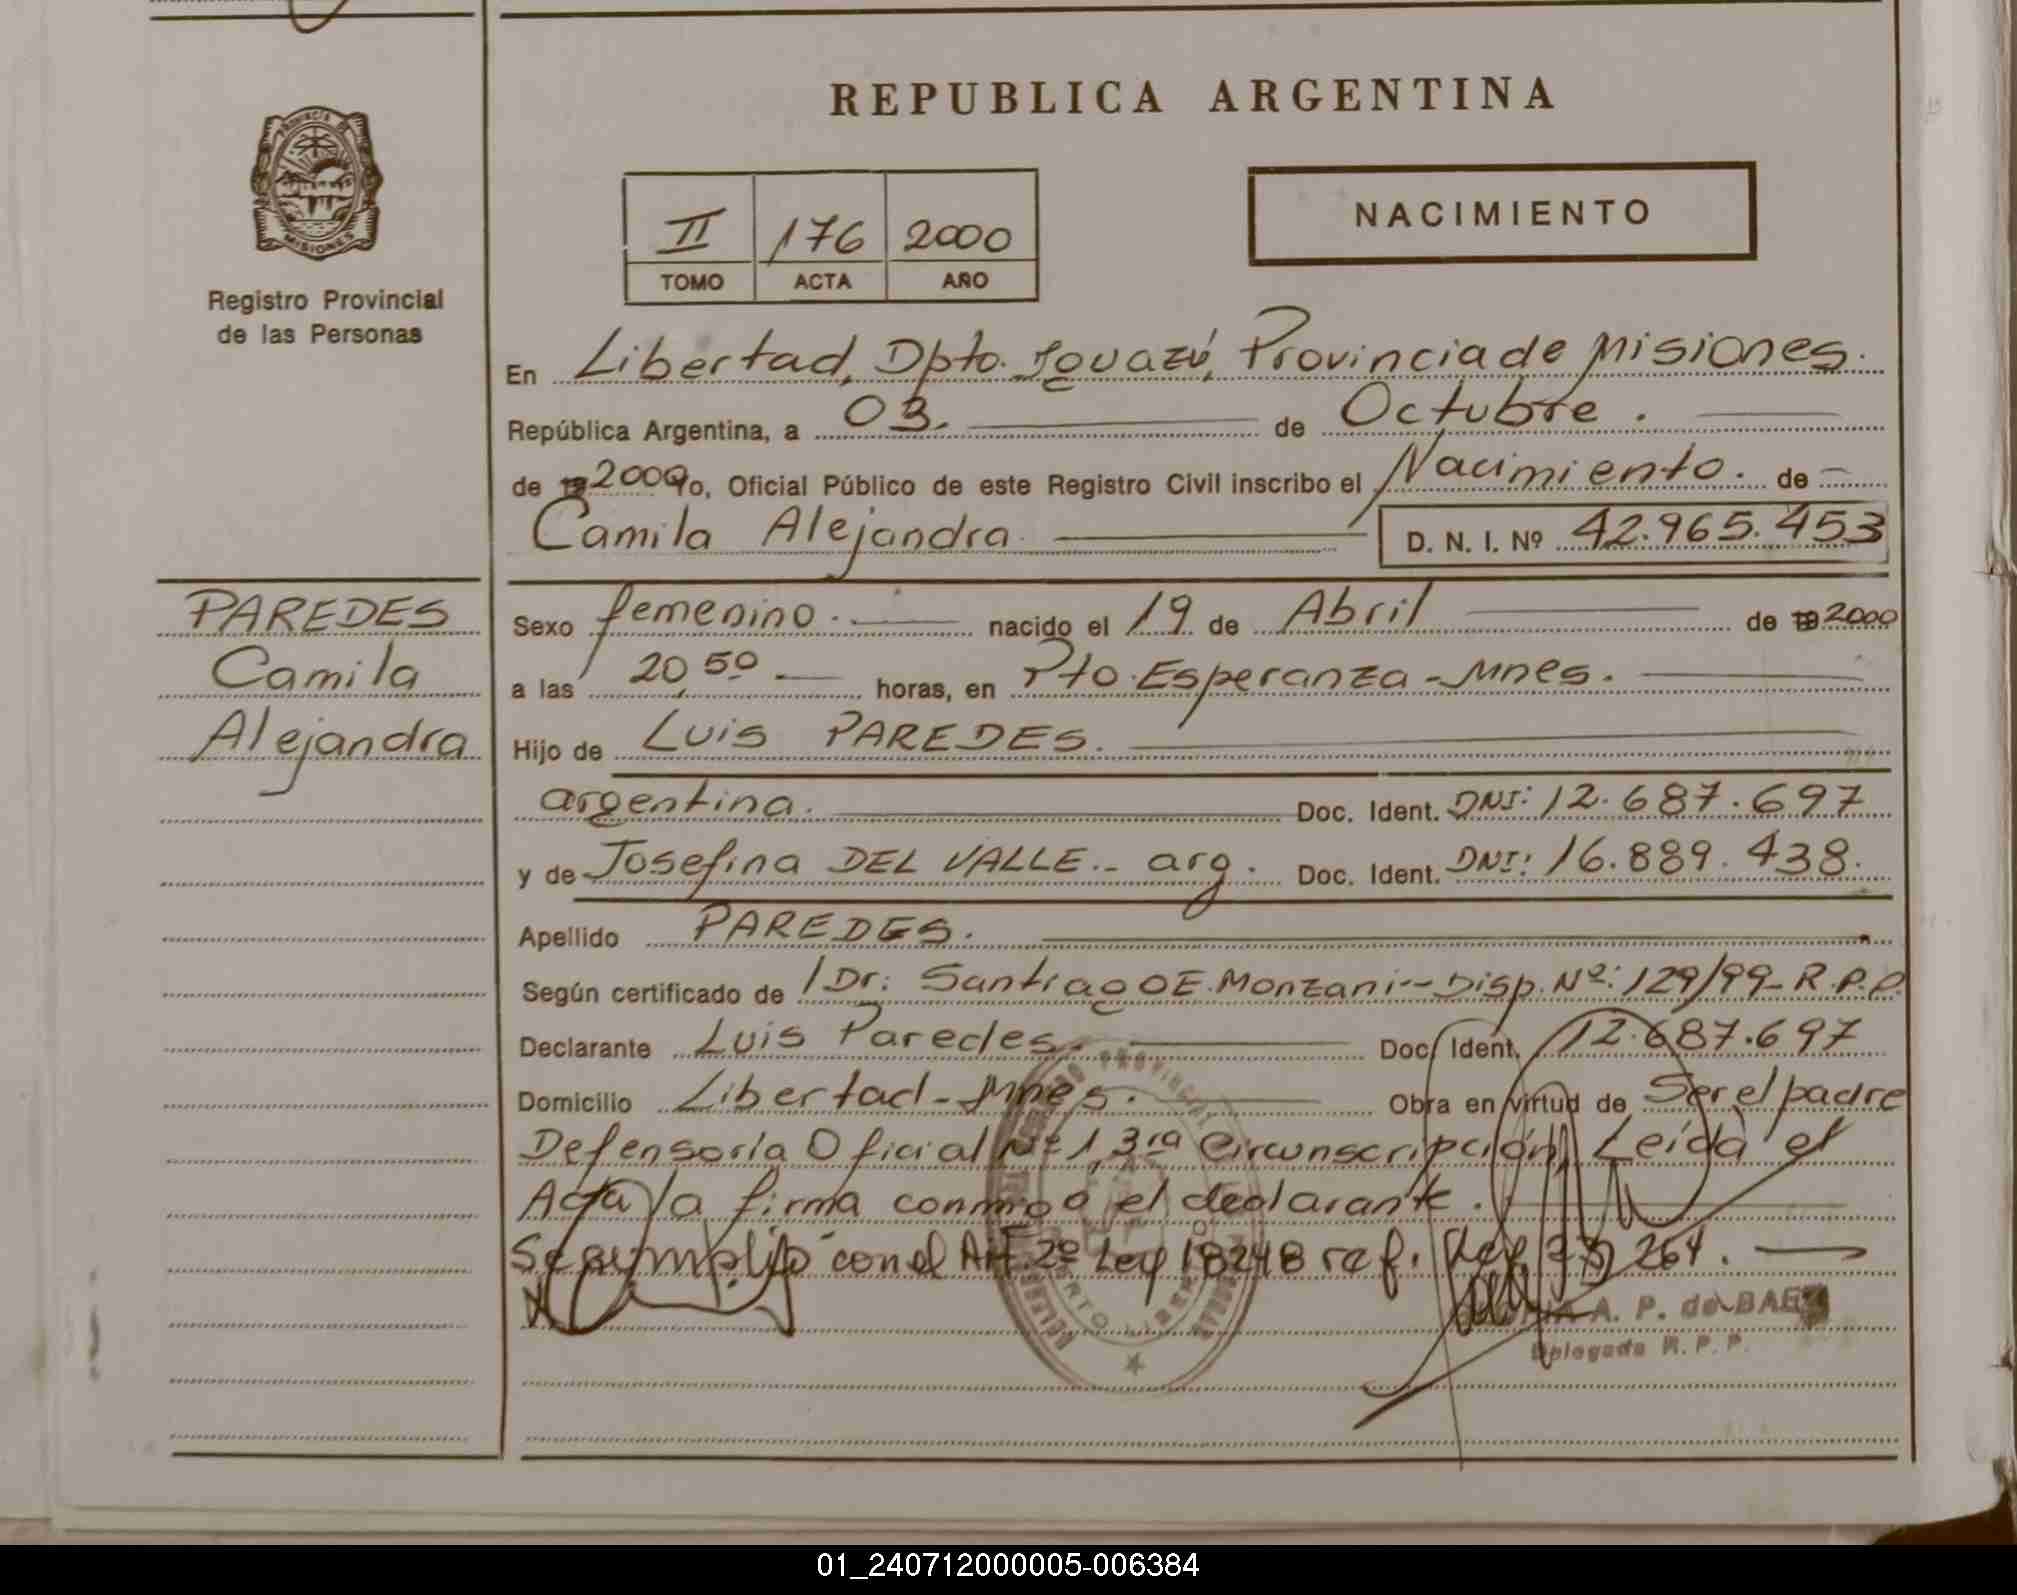 REPUBLICA ARGENTINA
PROVINCIA DE
MISIONES
Registro Provincial
de las Personas
II 176 2000
TOMO ACTA AÑO
NACIMIENTO
En Libertad, Dpto. Iguazú, Provincia de Misiones.
República Argentina, a 03. de Octubre.
de 19 2000 Yo, Oficial Público de este Registro Civil inscribo el Nacimiento. de
Camila Alejandra. D. N. I. Nº 42.965.453
PAREDES
Camila
Alejandra
Sexo femenino. nacido el 19 de Abril de 19 2000
a las 20,50 horas, en Pto. Esperanza - Mnes.
Hijo de Luis PAREDES.
argentina. Doc. Ident. DNI: 12.687.697
y de Josefina DEL VALLE.- arg. Doc. Ident. DNI: 16.889.438.
Apellido PAREDES.
Según certificado de Dr: Santiago OE. Monzani -- Disp. Nº: 129/99 - R.P.P.
Declarante Luis Paredes. Doc. Ident. 12.687.697
Domicilio Libertad - Mnes. Obra en virtud de Ser el padre
Defensoría Oficial Nº 1, 3ra Circunscripción, Leída el
Acta la firma conmigo el declarante.
Se cumplió con el Art 2º Ley 18248 ref. Ley 23264.
A. P. de BAEZ
Delegada R. P. P.
01_240712000005-006384